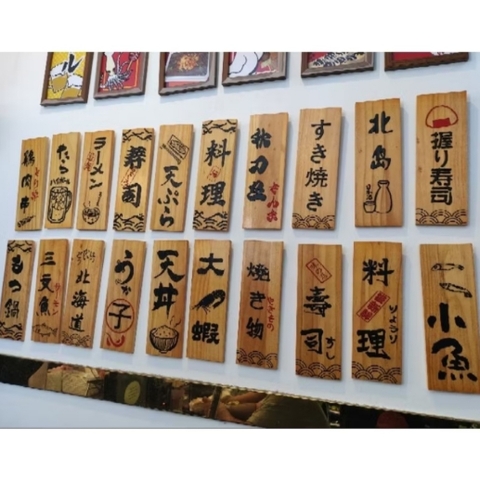 ル
鶏肉丼
たら
ラーメン
寿司
天ぷら
料理
すき焼き
北島
握り寿司
もつ鍋
三文魚
サーモン
北海道
天丼
大蝦
焼き物
やきもの
寿司
すし
料理
りょうり
小魚